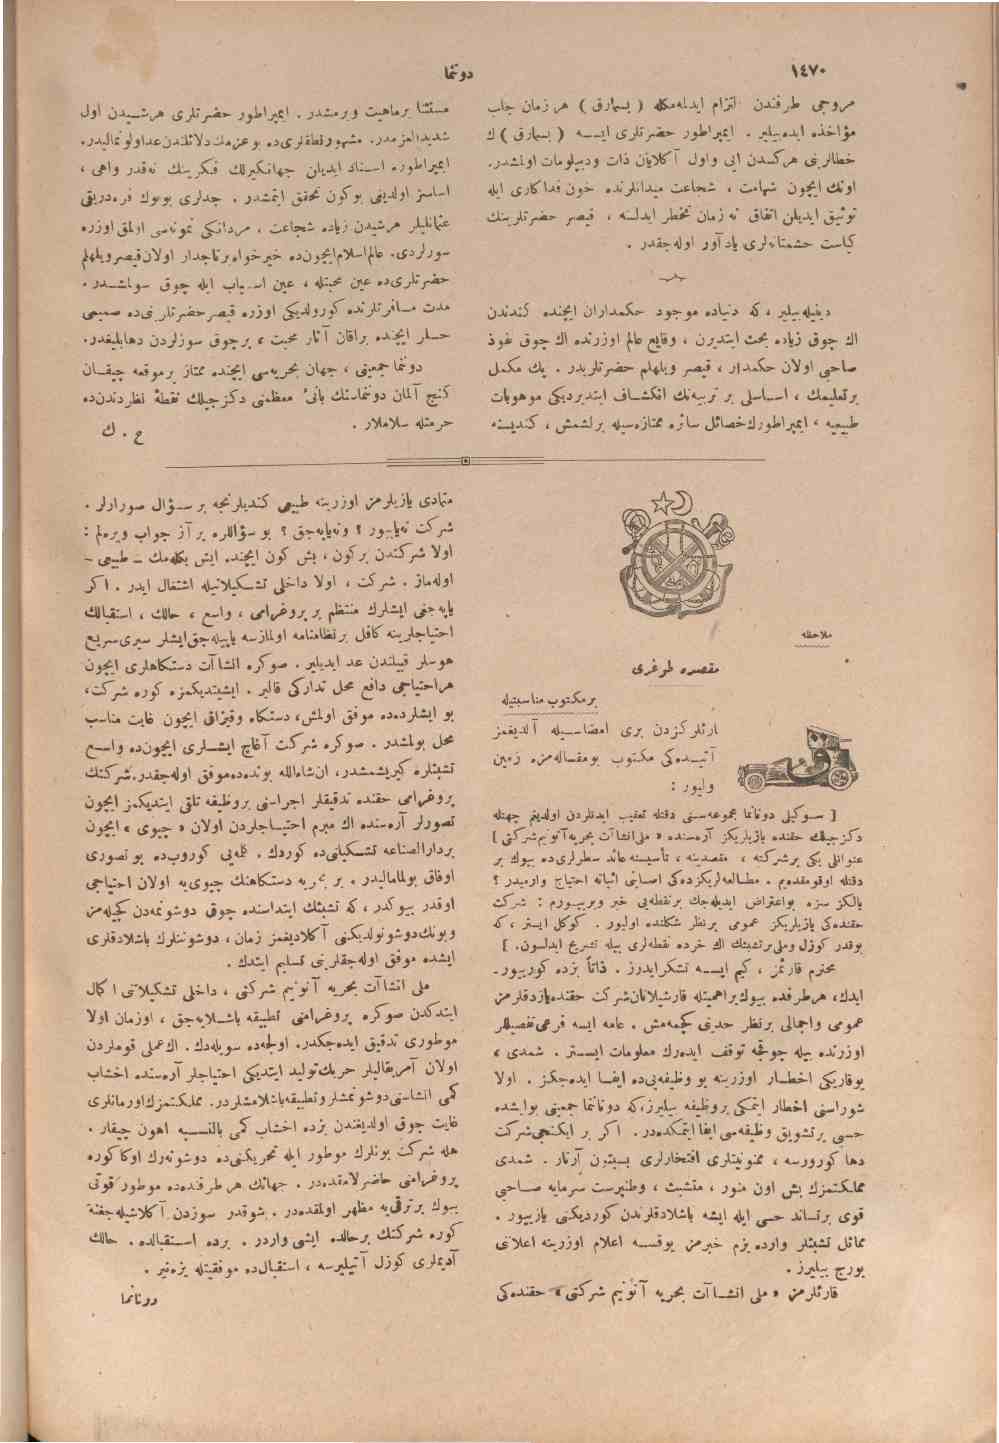 ١٤٧٠
دوننما
مروجی طرفندن التزام ایدلمه‌مكله ( بسمارق ) هر زمان جلب
مؤاخذه ایده‌بیلیر . ایمپراطور حضرتلری ایسه ( بسمارق ) ك
خطالرینی هركسدن ایی واول آكلایان ذات ودیپلومات اولمشدر.
اونك ایچون شهامت ، شجاعت میدانلرنده خون فداكاری ایله
توثیق ایدیلن اتفاق نه زمان تخطر ایدلسه ، قیصر حضرتلرینك
كیاست حشمتانه‌لری یادآور اوله‌جقدر .
دینیله‌بیلیر ، كه دنیاده موجود حكمداران ایچنده كندندن
اك چوق زیاده بحث ایتدیرن ، وقایع عالم اوزرنده اك چوق نفوذ
صاحبی اولان حكمدار ، قیصر ویلهلم حضرتلریدر . پك مكمل
برتعلیمك ، اساسلی بر تربیه‌نك انكشاف ایتدیردیكی موهوبات
طبیعیه ، ایمپراطورك خصائل سائره ممتازه‌سیله برلشمش ، كندیسنه
مستثنا برماهیت ویرمشدر . ایمپراطور حضرتلری هرشیدن اول
شدیدالعزمدر. مشهور نطقلری‌ده بو عزمك دلائلندن عد اولونمالیدر.
ایمپراطوره اسناد ایدیلن جهانگیرلك فكرینك نه‌قدر واهی ،
اساسز اولدیغی بوكون تحقق ایتمشدر . جدلری بویوك فره‌دریقی
عثمانلیلر هرشیدن زیاده شجاعت ، مردانكی نمونه‌سی اولمق اوزره
سورلردی. عالم اسلام ایچون‌ده خیرخواه برتاجدار اولان قیصر ویلهلم
حضرتلری‌ده عین محبتله ، عین اسباب ایله چوق سولمشدر .
مدت مسافرتلرنده كورولدیكی اوزره قیصر حضرتلرینی‌ده صمیمی
حسلر ایچنده براقان آثار محبت ، برچوق سوزلردن دها بلیغدر.
دوننما جمعیتی ، جهان بحریه‌سی ایچنده ممتاز برموقعه چیقان
كنج آلمان دوننماسنك بانئ معظمنی دكزجیلك نقطهٔ نظرندن‌ده
حرمتله سلاملار .
ح . ك
ملاحظه
مقصده طوغری
برمكتوب مناسبتیله
قارئلركزدن بری امضاسیله آلدیغمز
آتیده‌كی مكتوب بومقاله‌مزه زمین
اولیور :
[ سوكیلی دونانما مجموعه‌سنی دقتله تعقیب ایدنلردن اولدیغم جهتله
دكزجیلك حقنده یازیلریكز آره‌سنده « ملی انشاآت بحریه آنونیم شركتی ]
عنوانلی یكی برشركته ، مقصدینه ، تأسیسنه عائد سطرلری‌ده بیوك بر
دقتله اوقومقده‌یم . مطالعه‌لریكزده‌كی اصابتی اثباته احتیاج وارمیدر ؟
یالكز سزه بواعتراض ایدیله‌جك برنقطه‌یی خبر ویرییورم : شركت
حقنده‌كی یازیلریكز عمومی برنظر شكلنده اولیور . كوكل ایستر ، كه
بوقدر كوزل وملی برتشبثك اك خرده نقطه‌لری بیله تشریح ایدلسون. ]
محترم قارئمز ، كیم ایسه تشكر ایدرز . ذاتاً بزده كورییور-
ایدك، هرطرفده بیوك براهمیتله قارشیلانان شركت حقنده یازدقلرمز
عمومی واجمالی برنظر حدینی كچمه‌مش . عامه ایسه فرعی تفصیللر
اوزرنده بیله چوقجه توقف ایده‌رك معلومات ایستر . شمدی ،
یوقاریكی اخطار اوزرینه بو وظیفه‌یی‌ده ایفا ایده‌جكز . اولا
شوراسنی اخطار ایتمكی بروظیفه بیلیرز، كه دونانما جمعیتی بوایشده
حسی برتشویق وظیفه‌سی ایفا ایتمكده‌در . اكر بر ایكنجی شركت
دها كورورسه ، ممنونیتلری افتخارلری بسبتون آرتار . شمدی
مملكتمزك بش اون منور ، متشبث ، وطنپرست سرمایه صاحبی
قوی برتساند حسی ایله ایشه باشلادقلرندن كوردیكنی یازییور .
مماثل تشبثلر وارده بزم خبرمز یوقسه اعلام اوزرینه اعلانی
بورج بیلیرز .
قارئلرمز « ملی انشاآت بحریه آنونیم شركتی » حقنده‌كی
متمادی یازیلرمز اوزرینه طبیعی كندیلرنجه بر سؤال صورارلر .
شركت نه‌یاپیور ؟ ونه‌یاپه‌جق ؟ بو سؤاللره بر آز جواب ویره‌لم :
اولا شركتدن بركون ، بش كون ایچنده ایش بكله‌مك ــ طبیعی ــ
اوله‌ماز . شركت ، اولا داخلی تشكیلاتیله اشتغال ایدر . اكر
یاپه‌جغی ایشلرك منتظم بر پروغرامی ، واسع ، حالك ، استقبالك
احتیاجلرینه كافل برنظامنامه اولمازسه یاپیله‌جق ایشلر سیری سریع
هوسلر قبیلندن عد ایدیلیر . صوكره انشاآت دستكاهلری ایچون
هراحتیاجی دافع محل تداركی قالیر . ایشیتدیكمزه كوره شركت،
بو ایشلرده‌ده موفق اولمش، دستكاه وقیزاقی ایچون غایت مناسب
محل بولمشدر . صوكره شركت آغاچ ایشلری ایچون‌ده واسع
تشبثلره كیریشمشدر، ان‌شاءالله بونده‌ده موفق اوله‌جقدر. شركتك
پروغرامی حقنده تدقیقلر اجراسنی بروظیفه تلقی ایتدیكمز ایچون
تصورلر آره‌سنده اك مبرم احتیاجلردن اولان « چیوی » ایچون
بردارالصناعه تشكیلنی‌ده كوردك . فلمه‌یی كوروب‌ده بو تصوری
اوفاق بولمامالیدر . بر بحریه دستكاهنك چیوی‌یه اولان احتیاجی
اوقدر بیوكدر ، كه تشبثك ابتداسنده چوقی دوشونمه‌دن كچیله‌مز
وبونك دوشونولدیكنی آكلادیغمز زمان ، دوشونتلرك باشلادقلری
ایشده موفق اوله‌جقلرینی تسلیم ایتدك .
ملی انشاآت بحریه آنونیم شركتی ، داخلی تشكیلاتنی اكمال
ایتدكدن صوكره پروغرامنی تطبیقه باشلایه‌جق ، اوزمان اولا
موطوری تدقیق ایده‌جكدر. اولجه‌ده سویله‌دك . اك عملی قوملردن
اولان آمریقالیلر حربك تولید ایتدیكی احتیاجلر آره‌سنده اخشاب
كمی انشاسنی دوشونمشلر وتطبیقه باشلامشلردر. مملكتمزك اورمانلری
غایت چوق اولدیغندن بزده اخشاب كمی بالنسبه اهون چیقار .
هله شركت بونلرك موطور ایله تحریكنی‌ده دوشونه‌رك اوكا كوره
پروغرامنی حاضرلامقده‌در . جهانك هر طرفنده‌ده موطور قوتی
بیوك برترقی‌یه مظهر اولمقده‌در . شوقدر سوزدن آكلاشیله‌جغنه
كوره شركتك برحالده ایشی واردر . برده استقبالده . حالك
آدیملری كوزل آتیلیرسه ، استقبال‌ده موفقیتله بزه‌نیر .
دونانما